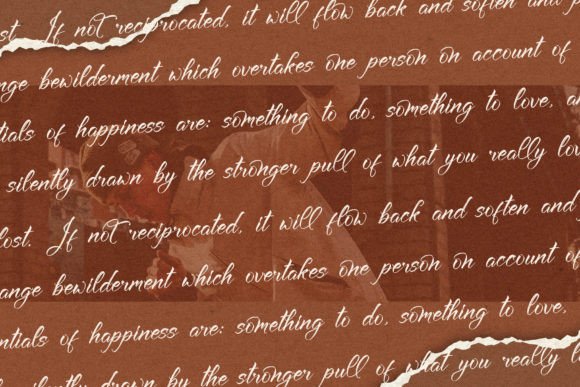 ost. If not reciprocated, it will flow back and soften and p
nge bewilderment which overtakes one person on account of
tials of happiness are: something to do, something to love, a
silently drawn by the stronger pull of what you really lov
lost. If not reciprocated, it will flow back and soften and
ange bewilderment which overtakes one person on account of
ntials of happiness are: something to do, something to love,
silently drawn by the stronger pull of what you really l